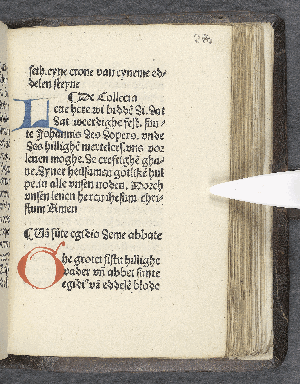 heild. eyne crone van eyneme ed-
delen steyne
¶ De Collecta
Leve here wi bidde di. dat
dat werdighe fest. sun-
te Johannis des dopers. unde
des hillighē mertelers. uns vor
lenen moghe. de creftighe gha-
ve. dyner heilsamen hul
pe. in alle unsen noden. Dorch
unsen heren ihesum chri-
stum Amen
¶ Vā sūte egidio deme abbate
Ghe grotet sistu hillighe
vader vn abbet sunte
egidi vā eddelē blode